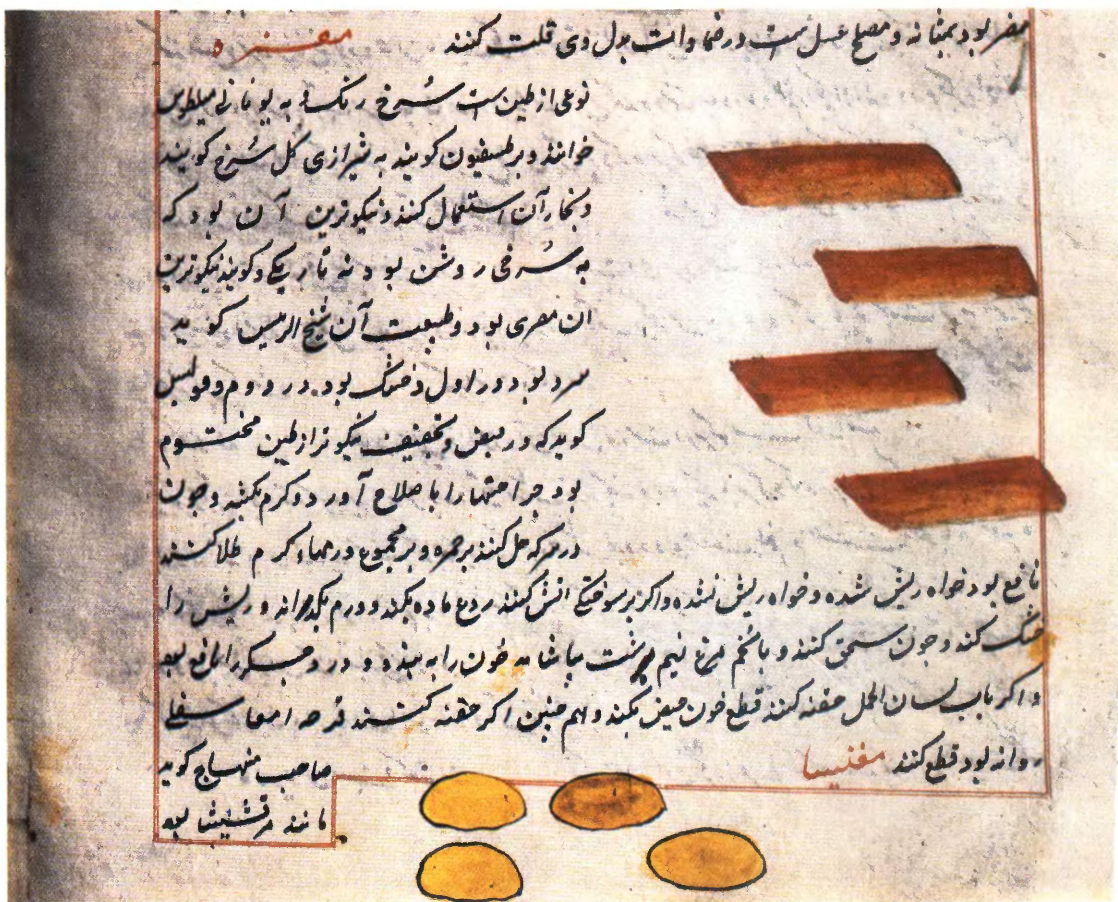 مضر بود بمثانه و مصلح عسل است در ضمادات بدل وی قلت کنند مغره
نوعی از طین است سرخ رنک و به یونانی میلطوس
خوانند و بر طسفیون کویند به شیرازی کل سرخ کویند
و نجار آن استعمال کنند و نیکوترین آن بود که
به سرخی روشن بود نه تاریکی و کویند نیکوترین
آن مصری بود و طبیعت آن شیخ الرئیس کوید
سرد بود در اول و خشک بود در دوم و بولس
کوید که در قبض و تجفیف نیکوتر از طین مختوم
بود جراحتها را باصلاح آورد و کرم بکشد و چون
در سرکه حل کنند بر حمره و بر مجموع ورمهاء کرم طلا کنند
نافع بود خواه ریش شده و خواه ریش نشده و اکر بر سوختکی اتش کنند ردع ماده بکند و ورم بکدارند و ریش را
خشک کند و چون سحق کنند و با تخم مرغ نیم برشت بیاشامند خون را به بندد و درد جکر را نافع بود
و اکر باب لسان الحمل حقنه کنند قطع خون حیض بکند و هم چنین اکر حقنه کنند قرحه امعا سفلی
روانه بود قطع کنند مغنیسا صاحب منهاج کوید
مانند مرقشیشا بود